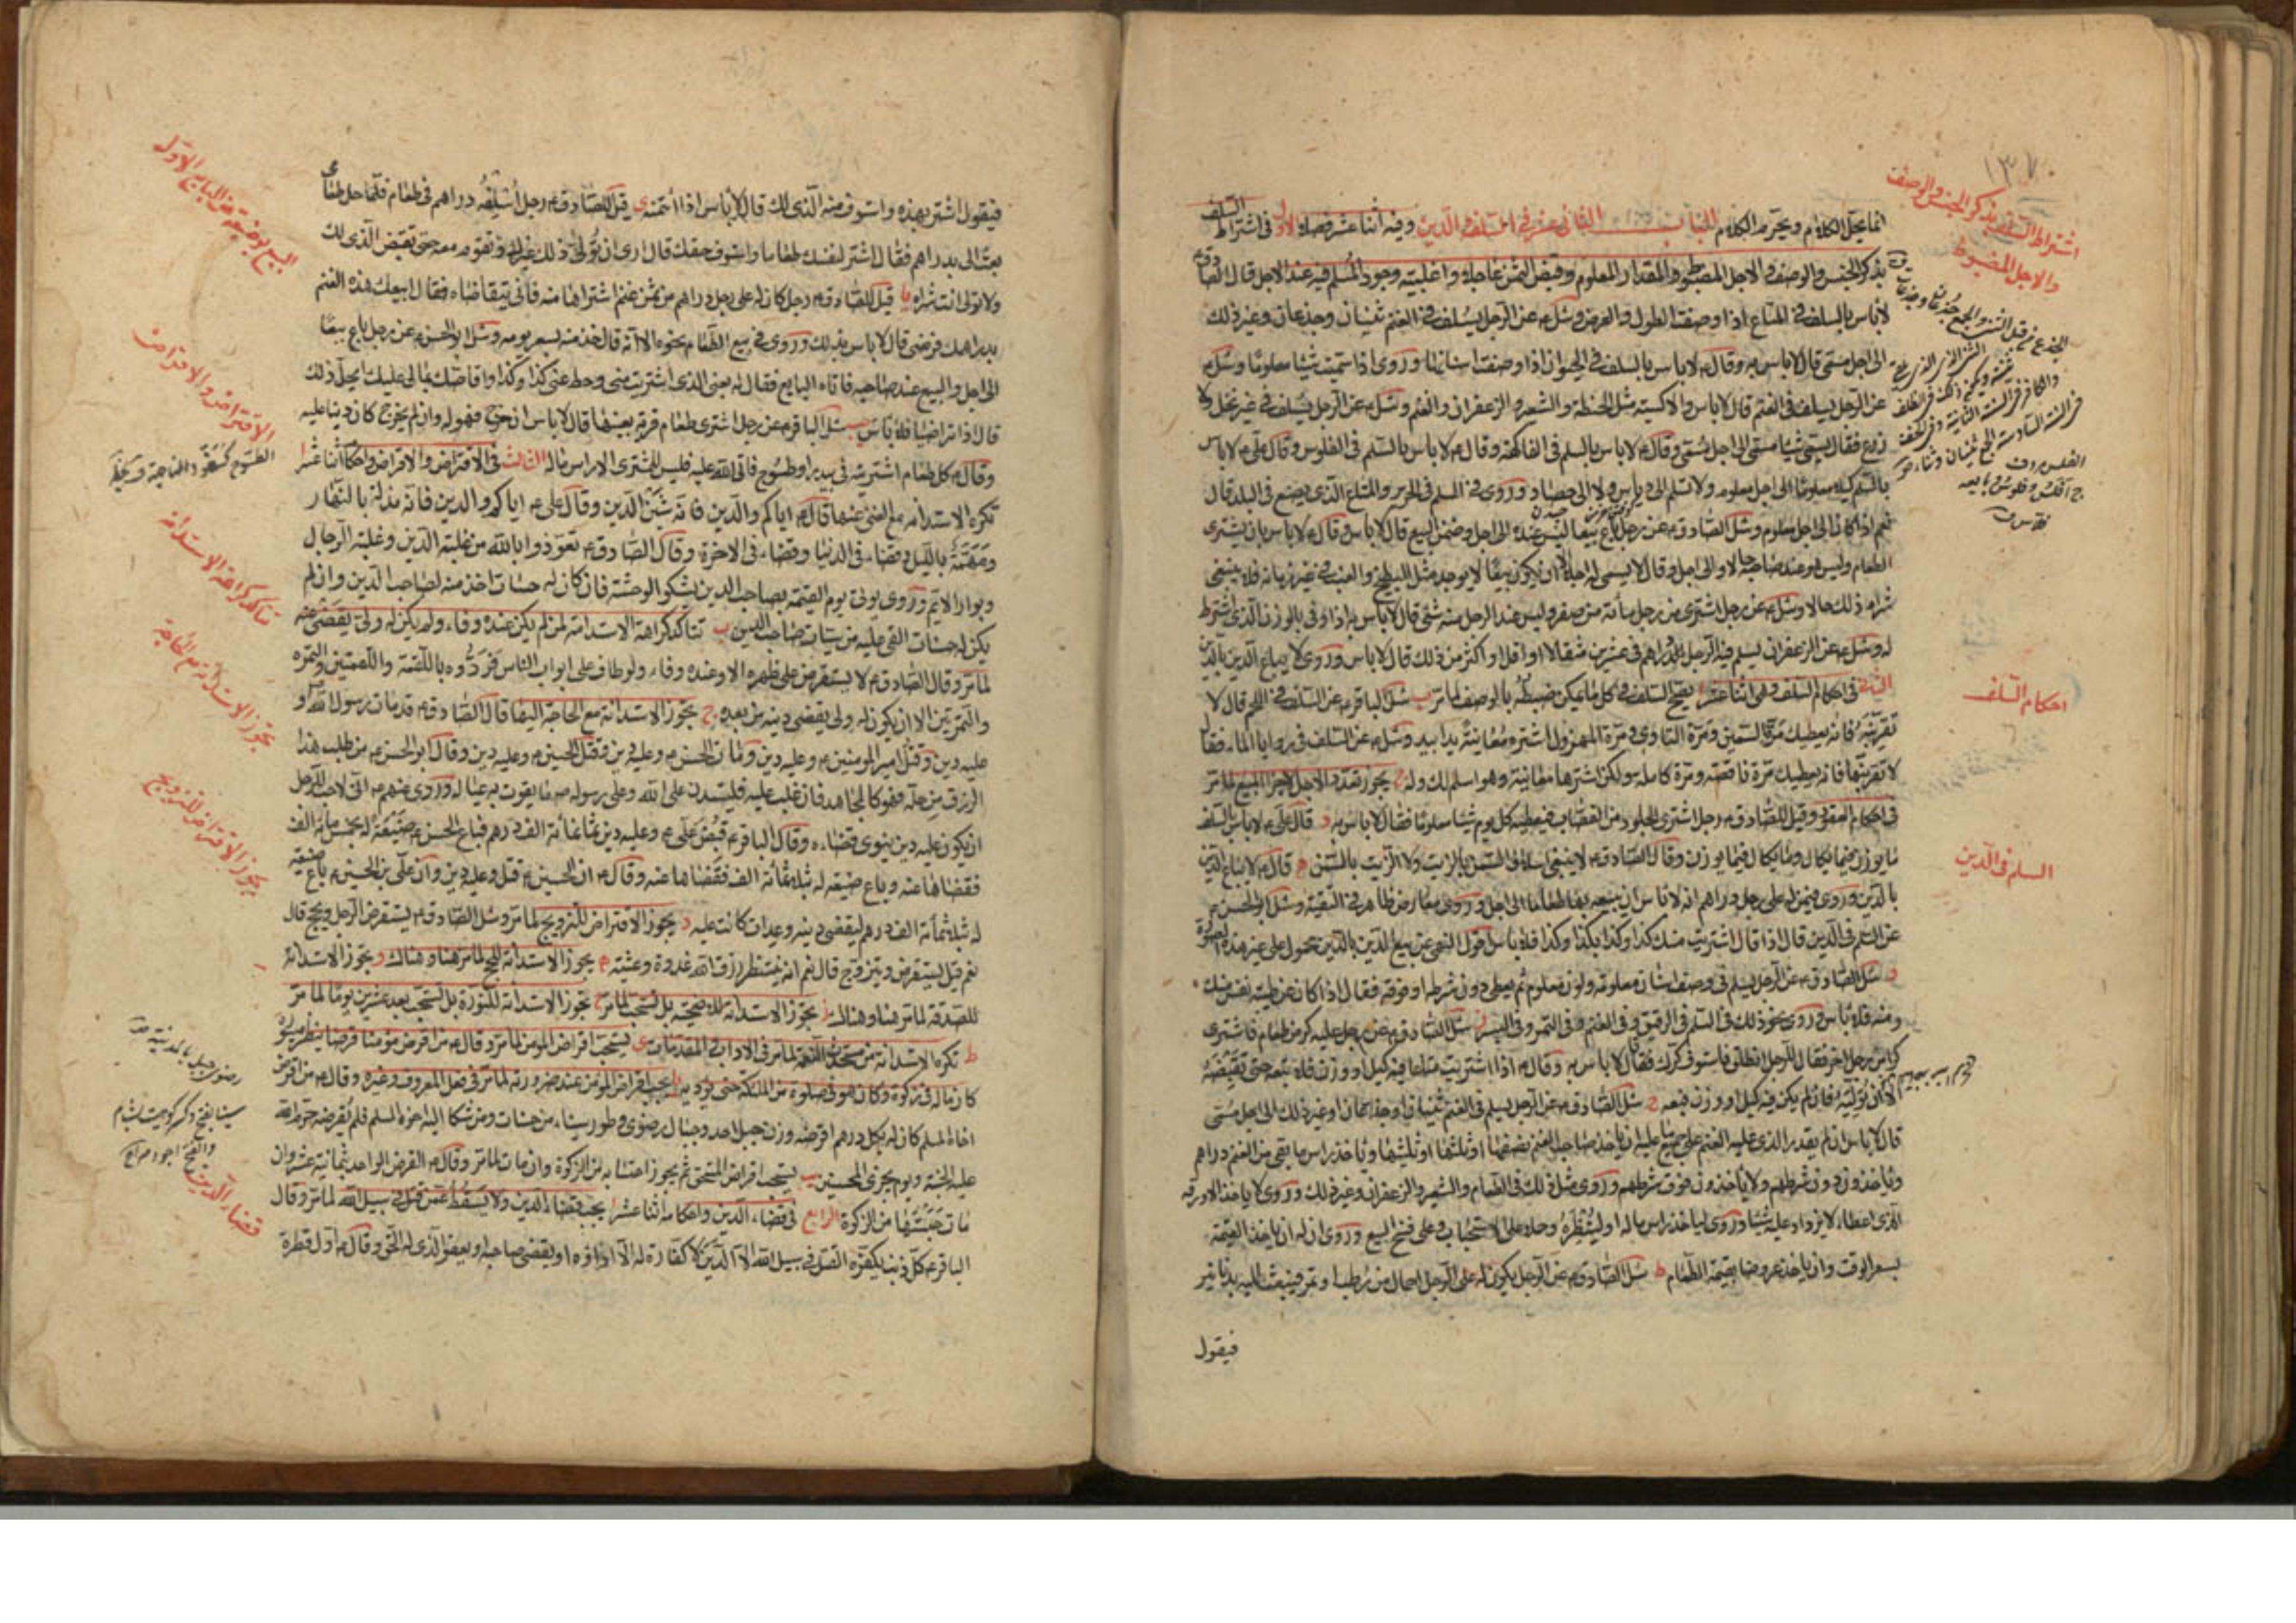 ١٣٧
اشتراط السلف بذكر الجنس والوصف
والاجل المضبوط
انما يحلل الكلام ويحرم الكلام الباب الثاني عشر في السلف والدين وفيه اثنا عشر فصلا الاول في اشتراط السلف
بذكر الجنس والوصف والاجل المضبوط والمقدار المعلوم وقبض الثمن عاجلا واغلبية وجود المسلم فيه عند الاجل قال الصادق ع
لا باس بالسلف في المتاع اذا وصفت الطول والعرض وسئل ع عن الرجل يسلف في الغنم ثنيان وجذعان وغير ذلك
الى اجل مسمى قال لا باس به وقال ع لا باس بالسلف في الحيوان اذا وصفت اسنانها وروى اذا سميت شيئا معلوما وسئل ع
عن الرجل يسلف في الغنم قال لا باس والاكسية مثل الحنطة والشعير والزعفران والغنم وسئل ع عن الرجل يسلف في غير نخل ولا
زرع فقال يسمى شيئا مسمى الى اجل مسمى وقال ع لا باس بالسلم في الفاكهة وقال ع لا باس بالسلم في الفلوس وقال على ع لا باس
بالسلم كيلا معلوما الى اجل معلوم ولا تسلم الى دياس ولا الى حصاد وروى في السلم في الحرير والمتاع الذي يصنع في البلد قال
نعم اذا كان الى اجل معلوم وسئل الصادق ع عن رجل باع بيعا ليس عنده الى اجل وضمن البيع قال لا باس وقال ع لا باس بان يشترى
الطعام وليس هو عند صاحبه حالا والى اجل وقال لا يسمى له اجلا الا ان يكون بيعا لا يوجد مثل البطيخ والعنب في غير زمانه فلا ينبغى
شراء ذلك حالا وسئل ع عن رجل اشترى من رجل مأة من صفرا وليس عند الرجل منه شئ قال لا باس به اذا وفى بالوزن الذي اشترط
له وسئل ع عن الزعفران يسلم فيه الرجل الدراهم في عشرين مثقالا او اقل او اكثر من ذلك قال لا باس وروى لا يباع الدين بالدين
الثاني في احكام السلف وهي اثنا عشر ا يصح السلف في كل ما يمكن ضبطه بالوصف لما مر ب سئل الباقر ع عن السلف في اللحم قال لا
تقربنه فانه يعطيك مرة السمين ومرة التاوى ومرة المهزول اشتره معاينة يدا بيد وسئل ع عن السلف في روايا الماء فقال
لا تقربنها فانه يعطيك مرة ناقصة ومرة كاملة ولكن اشترها معاينة وهو اسلم لك وله ج يجوز تعدد الاجل لاجزاء المبيع لما مر
في احكام العقود وقيل للصادق ع رجل اشترى الجلود من القصاب فيعطيه كل يوم شيئا معلوما فقال لا باس به د قال على ع لا باس بالسلف
ما يوزن فيما يكال وما يكال فيما يوزن وقال الصادق ع لا ينبغى اسلاف السمن بالزيت ولا الزيت بالسمن ه قال ع لا يباع الدين
بالدين وروى فيمن له على رجل دراهم انه لا باس ان يبيعه بها طعاما الى اجل وروى معارض ظاهر في التقية وسئل ابو الحسن ع
عن السلم في الدين قال اذا قال اشتريت منك كذا وكذا بكذا وكذا فلا باس اقول النهى عن بيع الدين بالدين محمول على غير هذه الصورة
و سئل الصادق ع عن الرجل يسلم في وصف اسنان معلومة ولون معلوم ثم يعطى دون شرطه او فوقه فقال اذا كان عن طيبة نفس منك
ومنه فلا باس وروى نحو ذلك في السلم في الرقيق وفي الغنم وفي التمر وفي البسر ز سئل الصادق ع عن رجل عليه كر من طعام فاشترى
كرا من رجل اخر فقال للرجل انطلق فاستوف كرك فقال لا باس به وقال ع اذا اشتريت متاعا فيه كيل او وزن فلا تبعه حتى تقبضه
الا ان توليه فان لم يكن فيه كيل او وزن فبعه ح سئل الصادق ع عن الرجل يسلم في الغنم ثنيان وجذعان وغير ذلك الى اجل مسمى
قال لا باس ان لم يقدر الذي عليه الغنم على جميع ما عليه ان ياخذ صاحب الغنم نصفها او ثلثها او ثلثيها وياخذ راس ما بقى من الغنم دراهم
وياخذون دون شرطهم ولا ياخذون فوق شرطهم وروى مثل ذلك في الطعام والشعير والزعفران وغير ذلك وروى لا ياخذ الا ورقه
الذي اعطاه لا يزداد عليه شيئا وروى لياخذ راس ماله او لينظره وحمله على الاستحباب وعلى فسخ البيع وروى ان له ان ياخذ القيمة
بسعر الوقت وان ياخذ عروضا بقيمة الطعام ط سئل الصادق ع عن الرجل يكون له على الرجل احمال من رطب او تمر فيبعث اليه بدنانير
فيقول
احكام السلف
السلم في الدين
فيقول اشتر بهذه واستوف منه الذي لك قال لا باس اذا ائتمنه ى قيل للصادق ع رجل اسلفه دراهم في طعام فلما حل طعامى
بعث الى بدراهم فقال اشتر لنفسك طعاما واستوف حقك قال ارى ان تولى ذلك غيرك وتقوم معه حتى تقبض الذي لك
ولا تولى انت شراه يا قيل للصادق ع رجل كان له على رجل دراهم من ثمن غنم اشتراها منه فاتى يتقاضاه فقال ابيعك هذه الغنم
بدراهمك فرضى قال لا باس بذلك وروى في بيع الطعام نحوه الا انه قال خذ منه بسعر يومه وسئل ابو الحسن ع عن رجل باع بيعا
الى اجل والبيع عند صاحبه فاتاه البايع فقال له بعنى الذي اشتريت منى وحط عنى كذا وكذا واقاصك بمالى عليك ايحل ذلك
قال اذا تراضيا فلا باس يب سئل الباقر ع عن رجل اشترى طعام قرية بعينها قال لا باس ان خرج فهو له وان لم يخرج كان دينا عليه
وقال ع كل طعام اشتريته في بيدر او طسوج فاتى الله عليه فليس للمشترى الا راس ماله الثالث في الاقتراض والاقراض واحكامه اثنا عشر ا
تكره الاستدانه مع الغنى عنها قال ع اياكم والدين فانه شين الدين وقال على ع اياكم والدين فانه مذلة بالنهار
ومهمة بالليل وقضاء في الدنيا وقضاء في الاخرة وقال الصادق ع تعوذوا بالله من غلبة الدين وغلبة الرجال
وبوار الايم وروى يؤتى يوم القيمة بصاحب الدين يشكو الوحشة فان كان له حسنات اخذ منه لصاحب الدين وان لم
يكن له حسنات القى عليه من سيئات صاحب الدين ب تتاكد كراهة الاستدانة لمن لم يكن عنده وفاء ولم يكن له ولى يقضى عنه
لما مر وقال الصادق ع لا يستقرض على ظهره الا وعنده وفاء ولو طاف على ابواب الناس فردوه باللقمة واللقمتين والتمره
والتمرتين الا ان يكون له ولى يقضى دينه من بعده ج تجوز الاستدانة مع الحاجة اليها قال الصادق ع قد مات رسول الله ص و
عليه دين وقتل امير المومنين ع وعليه دين ومات الحسن ع وعليه دين وقتل الحسين ع وعليه دين وقال ابو الحسن ع من طلب هذا
الرزق من حله فهو كالمجاهد فان غلب عليه فليستدن على الله وعلى رسوله ص ما يقوت به عياله وروى عنهم ع انى لاحب للرجل
ان يكون عليه دين ينوى قضاءه وقال الباقر ع قبض على ع وعليه دين ثمانمائة الف درهم فباع الحسن ع ضيعة له بخمس مائة الف
فقضاها عنه وباع ضيعة له بثلثمائة الف فقضاها عنه وقال ع ان الحسين ع قتل وعليه دين وان على بن الحسين ع باع ضيعة
له بثلثمأئة الف درهم ليقضى دينه وعدات كانت عليه د يجوز الاقتراض للتزويج لما مر وسئل الصادق ع يستقرض الرجل ويحج قال
نعم قيل يستقرض ويتزوج قال نعم انه ينتظر رزق الله غدوة وعشية ه يجوز الاستدانة للحج لما مر هنا وهناك و يجوز الاستدانة
للصدقة لما مر هنا وهناك ز يجوز الاستدانة للاضحية بل تستحب لما مر ح تجوز الاستدانة للنورة بل تستحب بعد عشرين يوما لما مر
ط تكره الاستدانة من مستحدث النعمة لما مر في الاداب في المقدمات ى يستحب اقراض المومن لما مر وقال ع من اقرض مؤمنا قرضا ينظر ميسوره
كان ماله في زكوة وكان هو في صلوة من الملئكة حتى يؤديه يا يجب اقراض المؤمن عند ضرورته لما مر في فعل المعروف وغيره وقال ع من اقرض
اخاه المسلم كان له بكل درهم اقرضه وزن جبل احد وجبال رضوى وطور سيناء من حسنات ومن شكا اليه اخوه المسلم فلم يقرضه حرم الله
عليه الجنة ويوم يجزى المحسنين يب يستحب اقراض المستحق ثم يجوز احتسابه من الزكوة وان مات لما مر وقال ع القرض الواحد بثمانية عشر وان
مات حسبتها من الزكوة الرابع في قضاء الدين واحكامه اثنا عشر ا يجب قضاء الدين ولا يسقط عمن قتل في سبيل الله لما مر وقال
الباقر ع كل ذنب يكفره القتل في سبيل الله الا الدين لا كفارة له الا اداؤه او يقضى صاحبه او يعفو الذي له الحق وقال ع اول قطرة
الاقتراض والاقراض
تاكد كراهة الاستدانة
تجوز الاستدانة مع الحاجة
يجوز الاقتراض للتزويج
رضوى جبل بالمدينة
قضاء الدين